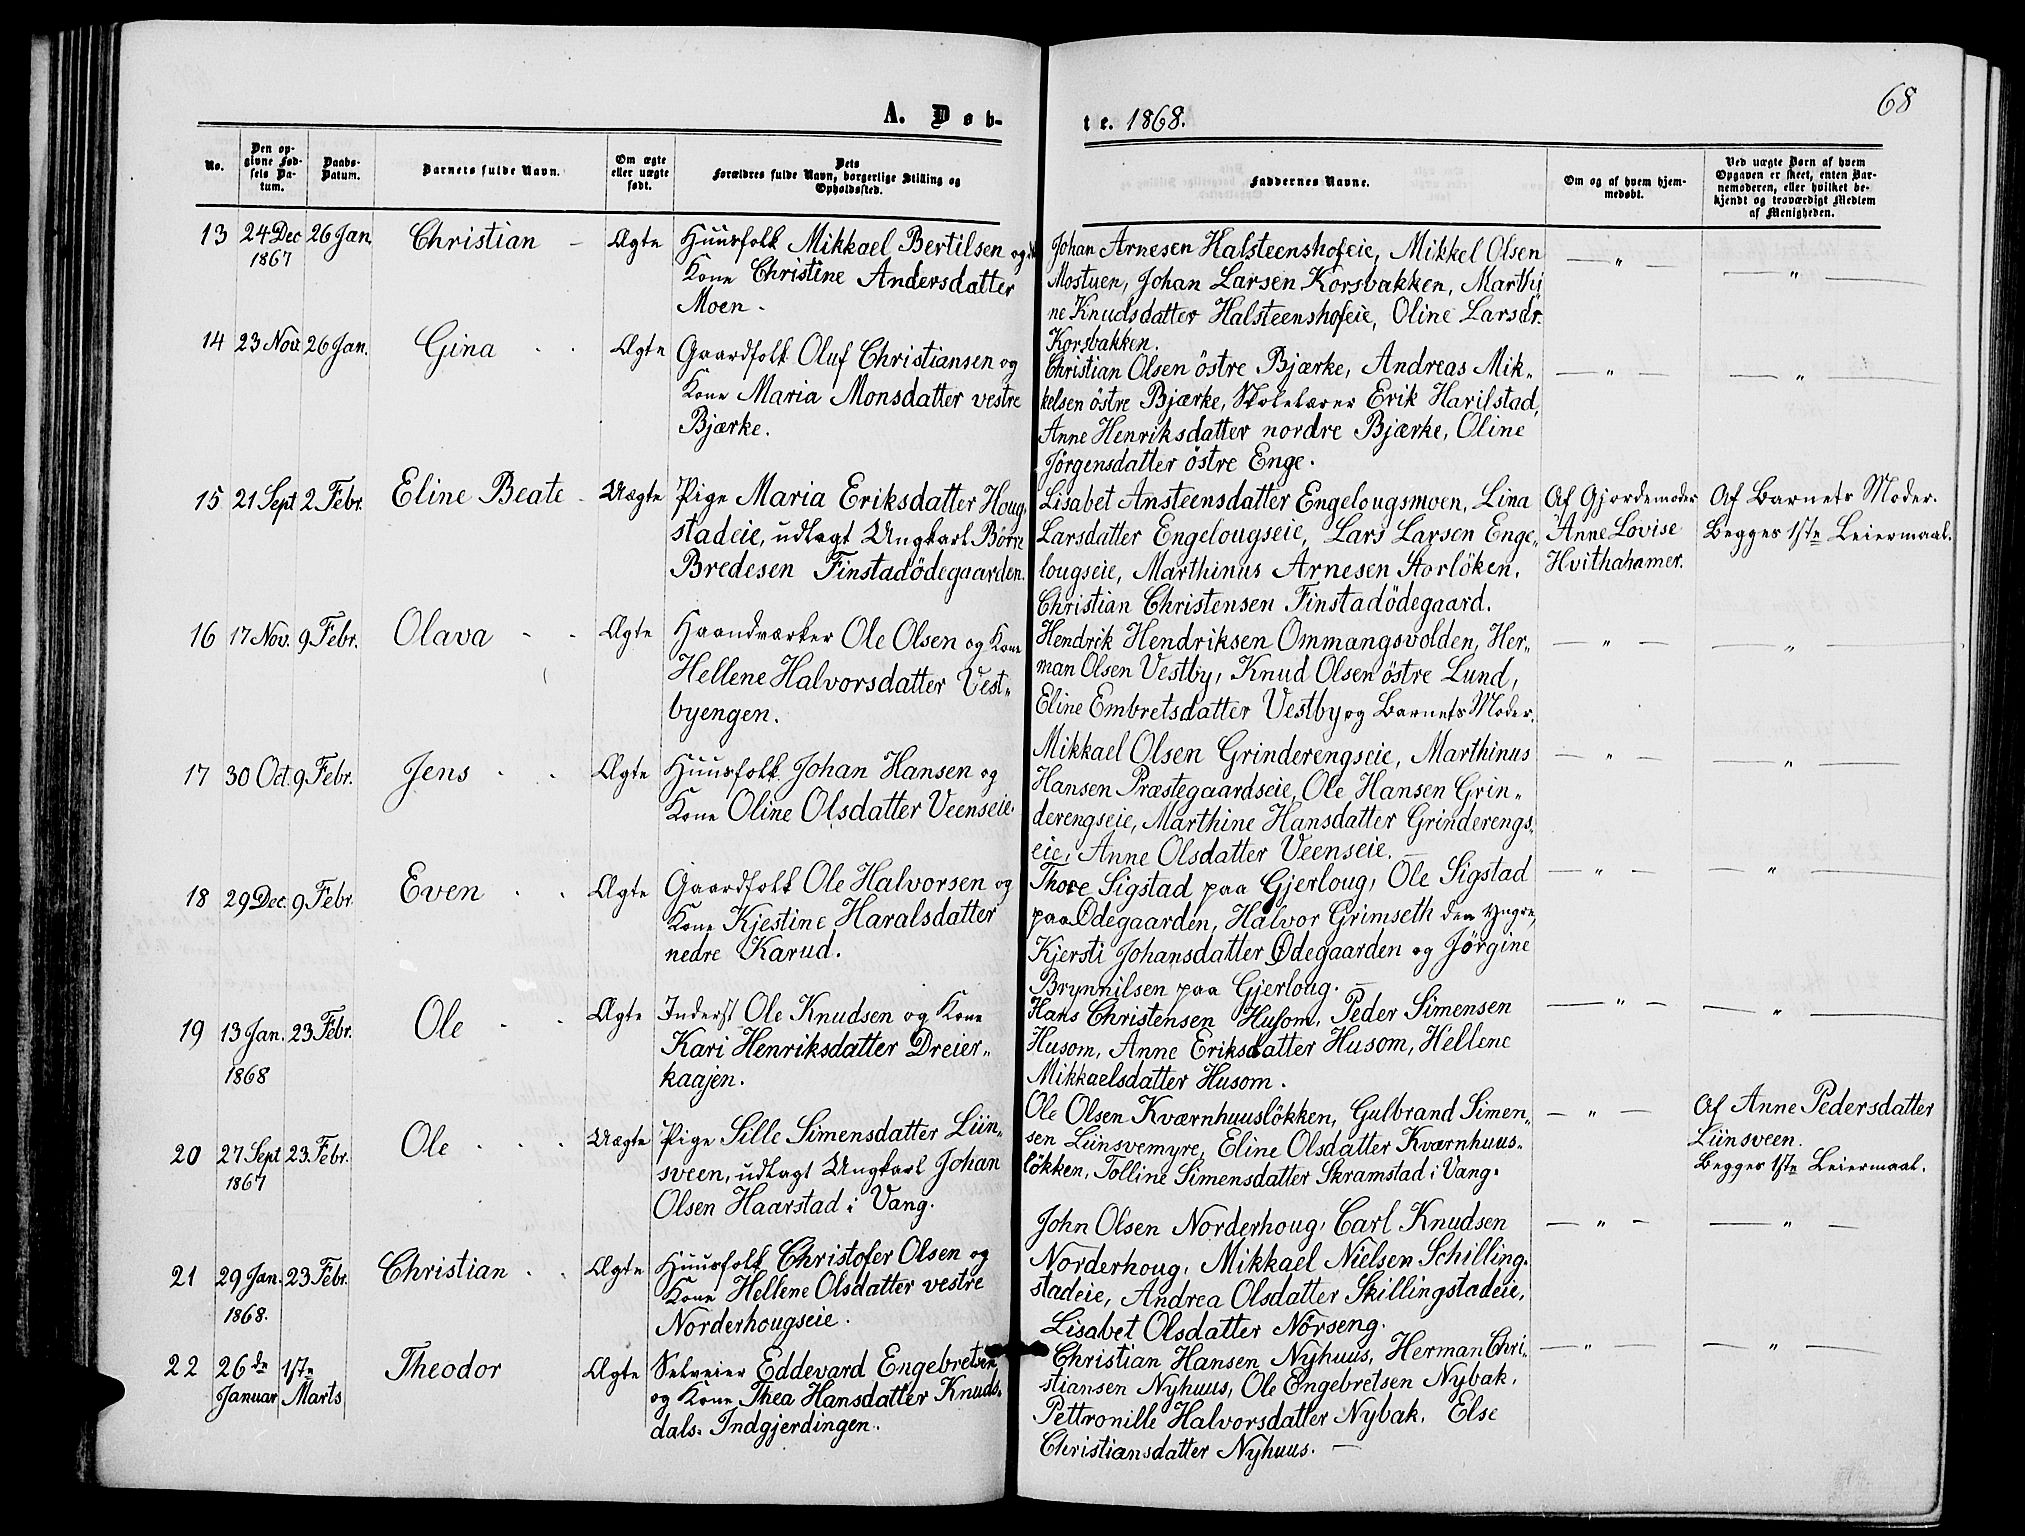 68
A. Døb-
te. 1868.
No.
Den op-
givne Fød-
sels Da-
tum.
Daabs-
Datum.
Barnets fulde Navn.
Om ægte
eller uægte
født.
Dets
Forældres fulde Navn, borgerlige Stilling og
Opholdssted.
Faddernes Navne.
Om og af hvem hjem-
medøbt.
Ved uægte Børn af hvem
Opgaven er skeet, enten Bar-
nemoderen, eller hvilket be-
kjendt og troværdigt Medlem
af Menigheden.
13 24 Dec 26 Jan. Christian – Ægte
1867
Huusfolk Mikkael Bertilsen og
Kone Christine Andersdatter
Moen.
Johan Arnesen Halsteenshofeie, Mikkel Olsen
Mostuen, Johan Larsen Korsbakken, Marthi
ne Knudsdatter Halsteenshofeie, Oline Larsdr.
Korsbakken.
— " —
— " —
14 23 Nov. 26 Jan. Gina - - Ægte
Gaardfolk Oluf Christiansen og
Kone Maria Monsdatter vestre
Bjærke.
Christian Olsen östre Bjærke, Andreas Mik„
kelsen östre Bjærke, Skolelærer Erik Harilstad,
Anne Henriksdatter nordre Bjærke, Oline
Jörgensdatter östre Enge.
— " —
— " —
15 21 Sept 2 Febr. Eline Beate - Uægte
Pige Maria Eriksdatter Houg„
stadeie, udlagt Ungkarl Börre
Bredesen Finstadödegaarden.
Lisabet Ansteensdatter Engelougsmoen, Lina
Larsdatter Engelougseie, Lars Larsen Enge„
lougseie, Marthinus Arnesen Storlöken,
Christian Christensen Finstadödegaard.
Af Gjordemoder
Anne Lovise
Hvithahamer.
Af Barnets Moder.
Begges 1ste Leiermaal.
16 17 Nov. 9 Febr. Olava - - Ægte
Haandværker Ole Olsen og Kone
Hellene Halvorsdatter Vest„
byengen.
Hendrik Hendriksen Ommangsvolden, Her„
man Olsen Vestby, Knud Olsen östre Lund,
Eline Embretsdatter Vestby og Barnets Moder.
— " —
— " —
17 30 Oct. 9 Febr. Jens - - Ægte
Huusfolk Johan Hansen og
Kone Oline Olsdatter Veenseie.
Mikkael Olsen Grinderengseie, Marthinus
Hansen Præstegaardseie, Ole Hansen Grin„
derengseie, Marthine Hansdatter Grinderengs„
eie, Anne Olsdatter Veenseie.
— " —
— " —
18 29 Dec. 9 Febr. Even - - Ægte
Gaardfolk Ole Halvorsen og
Kone Kjestine Haralsdatter
nedre Karud.
Thore Sigstad paa Gjerloug, Ole Sigstad
paa Ödegaarden, Halvor Grimseth den yngre,
Kjersti Johansdatter Ödegaarden og Jörgine
Brynnilsen paa Gjerloug. —
— " —
— " —
19 13 Jan. 23 Febr. Ole - - Ægte
1868
Inderst Ole Knudsen og Kone
Kari Henriksdatter Dreier„
kaajen.
Hans Christensen Husom, Peder Simensen
Husom, Anne Eriksdatter Husom, Hellene
Mikkaelsdatter Husom.
— " —
— " —
20 27 Sept 23 Febr. Ole - - - Uægte
1867
Pige Sille Simensdatter Liin„
sveen, udlagt Ungkarl Johan
Olsen Haarstad i Vang.
Ole Olsen Kværnhuuslökken, Gulbrand Simen„
sen Liinsvemyre, Eline Olsdatter Kværnhuus„
lökken, Tolline Simensdatter Skramstad i Vang.
— " —
Af Anne Pedersdatter
Liinsveen.
Begges 1ste Leiermaal.
21 29 Jan. 23 Febr. Christian - - Ægte
1868.
Huusfolk Christofer Olsen og
Kone Hellene Olsdatter vestre
Norderhougseie.
John Olsen Norderhoug, Carl Knudsen
Norderhoug, Mikkael Nielsen Schilling„
stadeie, Andrea Olsdatter Skillingstadeie,
Lisabet Olsdatter Nörseng.
— " —
— " —
22 26de 1ste Theodor Ægte
Januar Marts
Selveier Eddevard Engebretsen
og Kone Thea Hansdatter Knuds„
dals Indgjerdingen.
Christian Hansen Nyhuus, Herman Chri„
stiansen Nyhuus, Ole Engebretsen Nybak,
Pettronille Halvorsdatter Nybak, Else
Christiansdatter Nyhuus. —
— " —
— " —